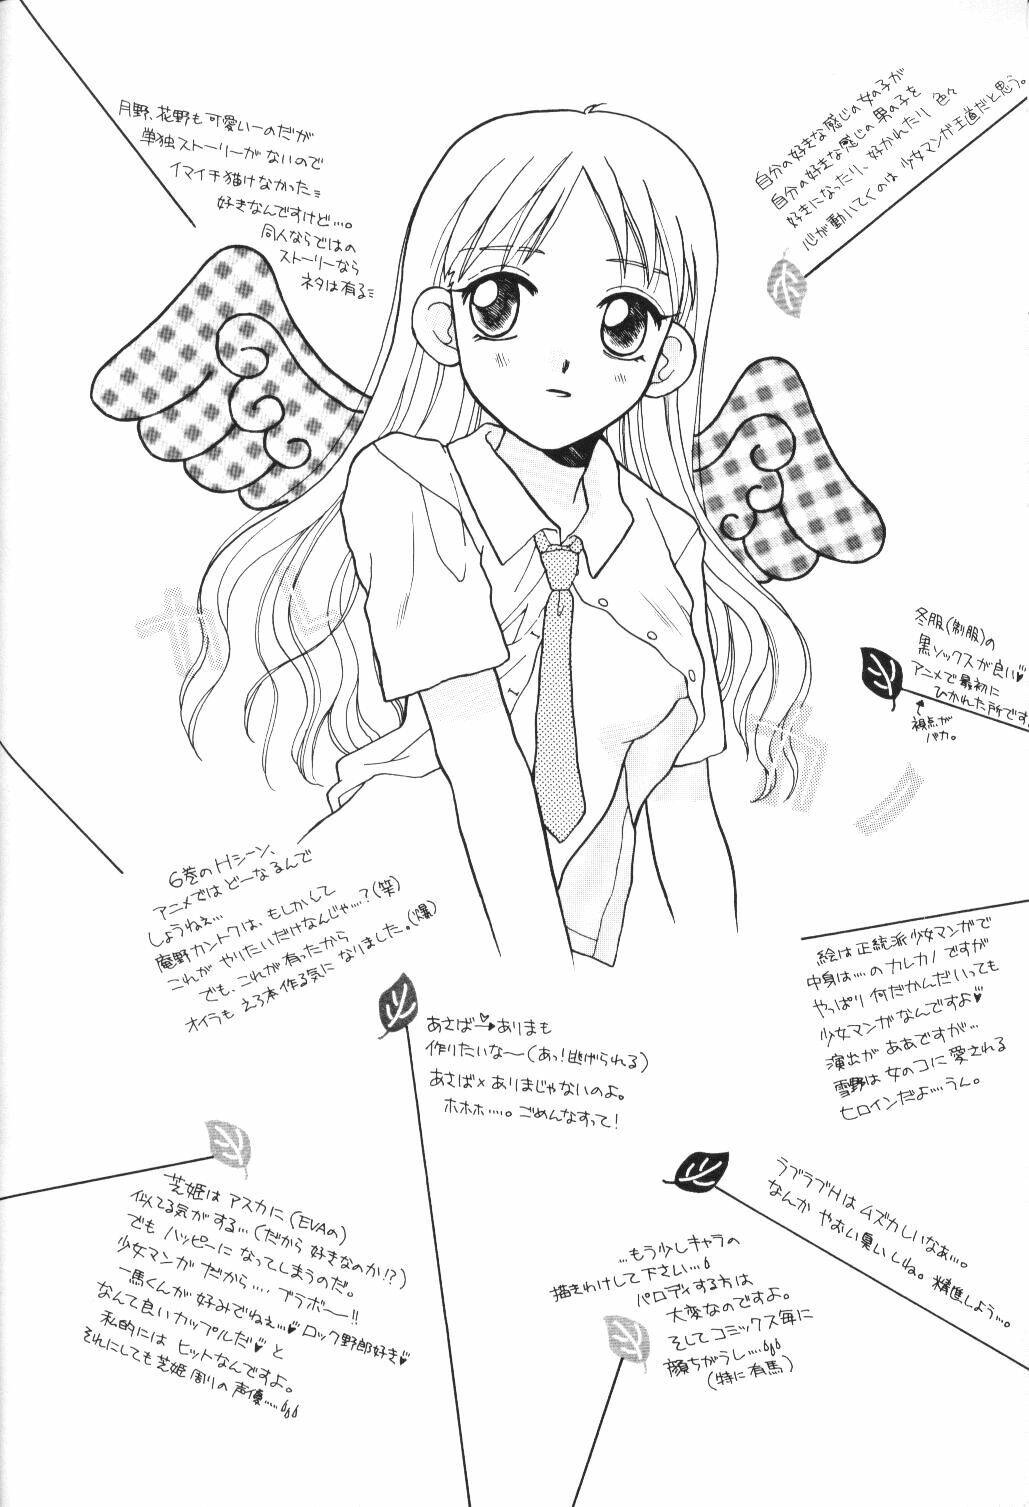 月野、花野も可愛いーのだが
単独ストーリーがないので
イマイチ描けなかった
好きなんですけど…。
同人ならではの
ストーリーなら
ネタは有る
自分の好きな感じの女の子が
自分の好きな感じの男の子を
好きになったり、好かれたり 色々
心が動いてくのは 少女マンガ王道だと思う。
冬服(制服)の
黒ソックスが良い♥
アニメで最初に
ひかれた所です
視点が
バカ。
6巻のHシーン、
アニメではどーなるんで
しょうねぇ…
庵野カントクは、もしかして
これが やりたいだけなんじゃ…?(笑)
でも、これが有ったから
オイラも えろ本作る気に なりました。(爆)
絵は正統派少女マンガで
中身は…のカレカノですが
やっぱり何だかんだいっても
少女マンガなんですよ♥
演出が ああですが…
雪野は 女のコに愛される
ヒロインだよ…うん。
あさば→ありまも
作りたいな〜(あっ!逃げられる)
あさば×ありまじゃないのよ。
ホホホ…。ごめんなすって!
芝姫は アスカに(EVAの)
似てる気がする…(だから 好きなのか!?)
でも ハッピーに なってしまうのだ。
少女マンガ だから…。ブラボー!!
一馬くんが 好みでねぇ…♥ロック野郎好き♥
なんて良いカップルだ♥と
私的には ヒットなんですよ。
それにしても芝姫 周りの 声優…
ラブラブHは ムズカしいなぁ…。
なんか やおい臭いしね。精進しよう…。
…もう少しキャラの
描きわけして下さい…
パロディする方は
大変なのですよ。
そしてコミックス毎に
顔ちがうし…
(特に有馬)